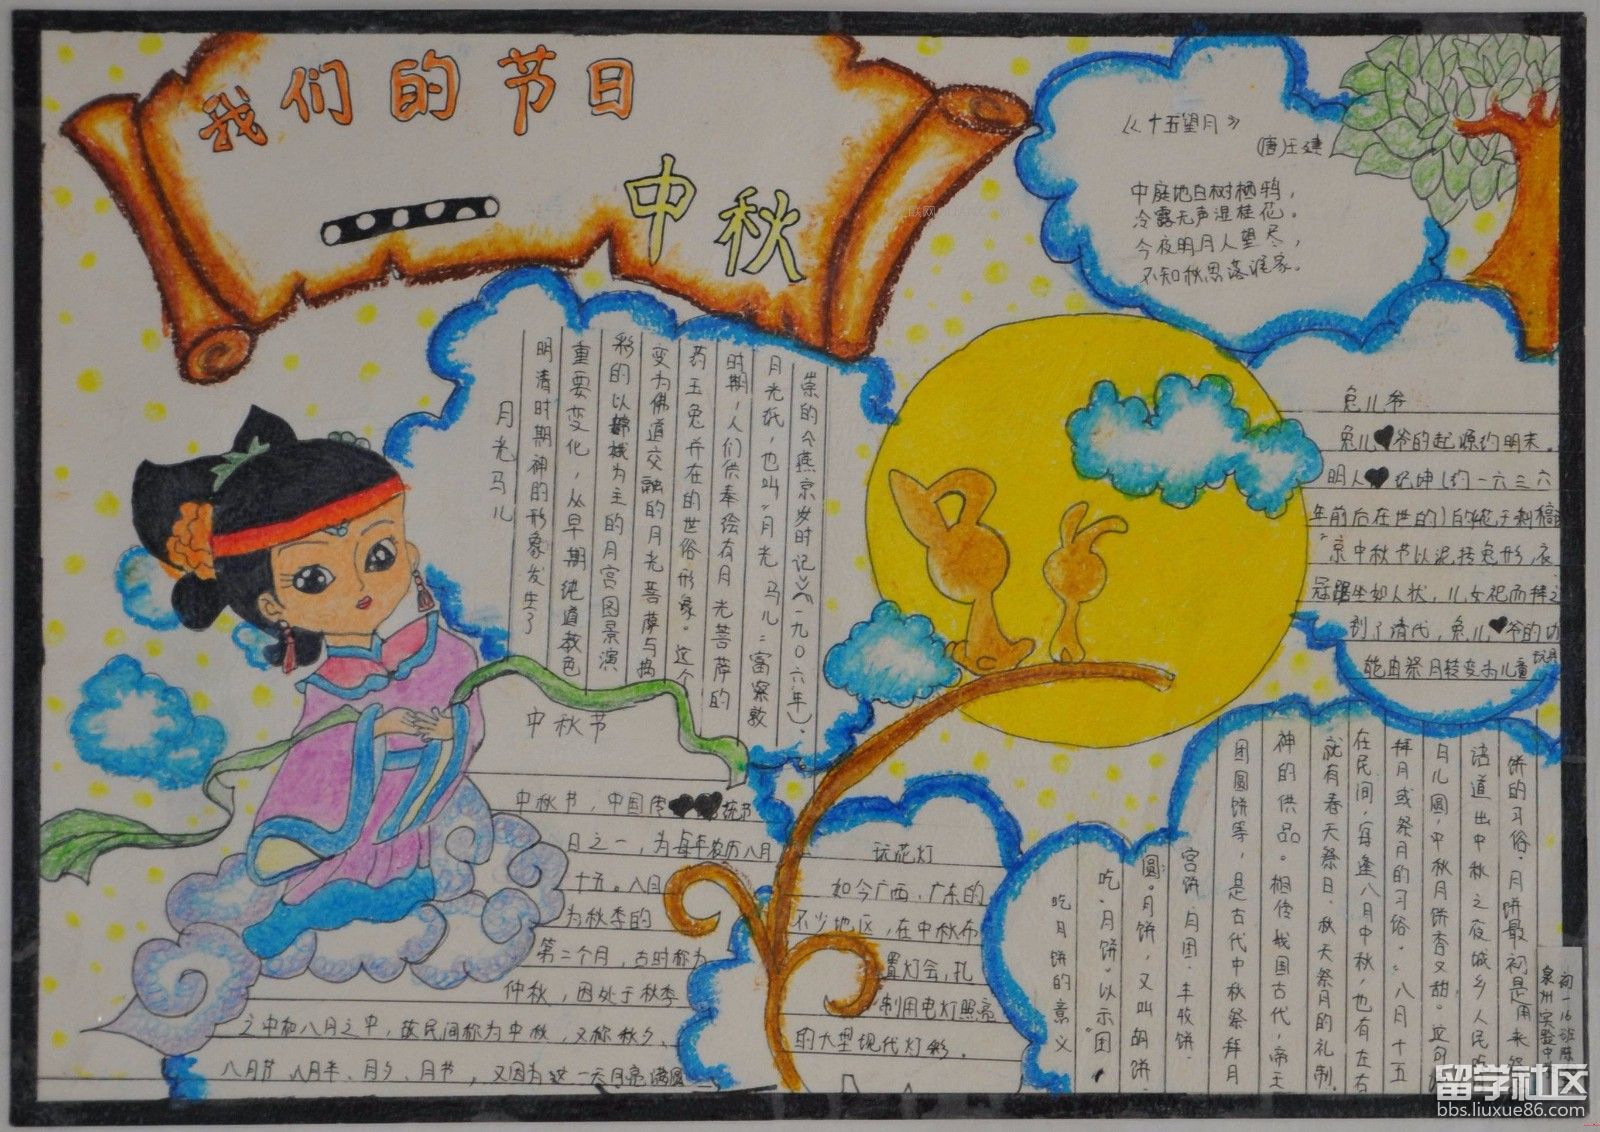 我们的节日
中秋
《十五望月》
(唐)王建
中庭地白树栖鸦，
冷露无声湿桂花。
今夜明月人望尽，
不知秋思落谁家。
月光马儿
明清时期神的形象发生了
重要变化，从早期纯道教色
彩的以嫦娥为主的月宫图景演
变为佛道交融的月光菩萨与捣
药玉兔并在的世俗形象。这个
时期，人们供奉绘有月光菩萨的
月光纸，也叫"月光马儿"富察敦
崇的《燕京岁时记》（一九〇六年）。
兔儿爷
兔儿爷的起源约明末。
明人纪坤（约一六三六
年前后在世的）的
京中秋节以泥抟兔形，衣
冠踞坐如人状，儿女祀而拜之
到了清代，兔儿爷的功
能由祭月转变为儿童玩具
中秋节
中秋节，中国传统节
日之一，为每年农历八月
十五。八月
为秋季的
第二个月，古时称为
仲秋，因处于秋季
之中和八月之中，故民间称为中秋，又称秋夕、
八月节、八月半、月夕、月节，又因为这一天月亮满圆
玩花灯
如今广西、广东的
不少地区，在中秋布
置灯会，扎
制用电灯照亮
的大型现代灯彩。
吃月饼的意义
吃"月饼"以示"团
圆"。月饼，又叫胡饼、
宫饼、月团、丰收饼、
团圆饼等，是古代中秋祭拜月
神的供品。相传我国古代，帝王
就有春天祭日、秋天祭月的礼制。
在民间，每逢八月中秋，也有左右
拜月或祭月的习俗。"八月十五
月儿圆，中秋月饼香又甜"，这句
话道出中秋之夜城乡人民吃
饼的习俗。月饼最初是用来祭
初一16班陈
泉州实验中
留学社区
bbs.liuxue86.com